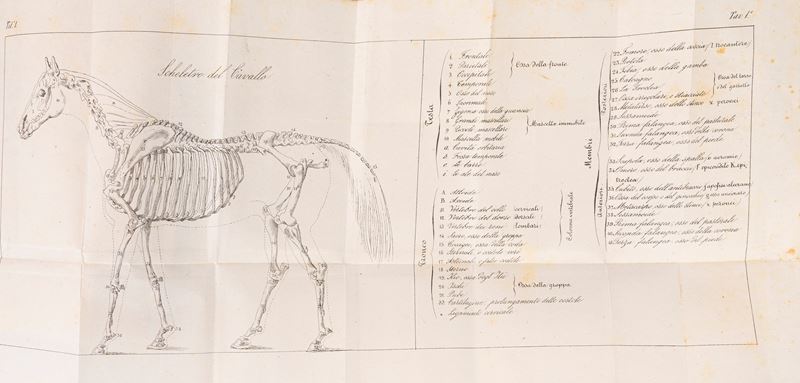 Tav 1.ª
Scheletro del Cavallo
Testa
1 Frontale
2 Parietale
3 Occipitale
4 Temporale
5 Osso del naso
6 Lacrimale
7 Zigoma osso della guancia
8 Grande mascellare
9 Piccolo mascellare
10 Mascella mobile
a Cavità orbitaria
b Fossa temporale
c le barre
Ossa della fronte
Mascella immobile
Tronco
A Atlande
12 Vertebre del collo (cervicali)
Vertebre del dorso dorsali
Vertebre dei (lombari)
14 Sacro, osso della groppa
15 ossa della coda
16 Sternali, o costole vere
17 Asternali o false costole
18 Sterno
19 Ileo, osso degli Ilei
21 Pube
22 Cartilagini, prolungamento delle costole
* Legamento cervicale
Colonna vertebrale
Ossa della groppa
Membri
Posteriori
22 Femore, osso della coscia
23 Rotola
24 Tibia, osso della gamba
25 Calcagno
Ossa del tarso
del garretto
28 Metatarso, osso dello stinco x peronei
29 Sessamoide
30 Prima falangea, osso del pasturale
31 Seconda falangea, osso della corona
32 Terza falangea, osso del piede
Anteriori
33 Scapola, osso della spalla
34 Omero, osso del braccio
troclea
35 Cubito, osso dell'antibraccio
36 Ossa del carpo o del ginocchio
37 Metacarpo, osso dello stinco x peronei
38 Sessamoide
39 Prima falangea, osso del pasturale
40 Seconda falangea, osso della corona
41 Terza falangea, osso del piede